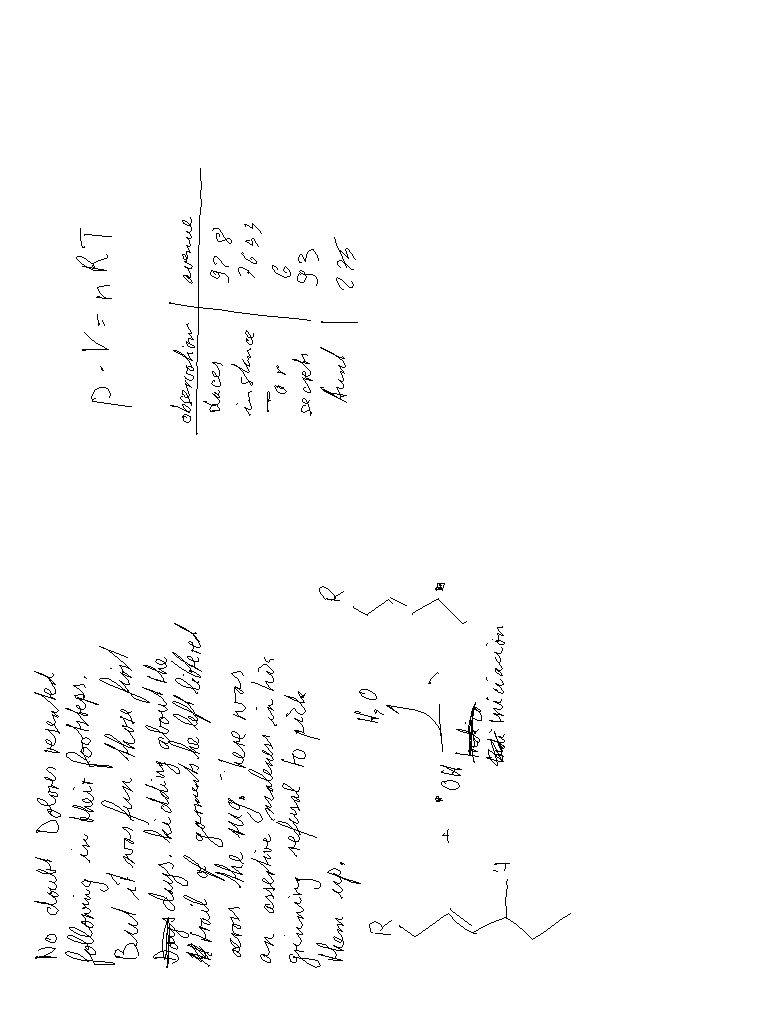 No doubt Dolores resented
following in their footsteps.
But it was fun those first
days. kidding about the
trail of garments he left littered
across the rug. here was
an assertive maleness in his
grinning refusal to pick
them up.
p · V = nRT
observation avenue
places 978
instance 7633
or 6
secrets 93
Aunt 275
R
H
+
•OH
H₂O
Iniciacion
R